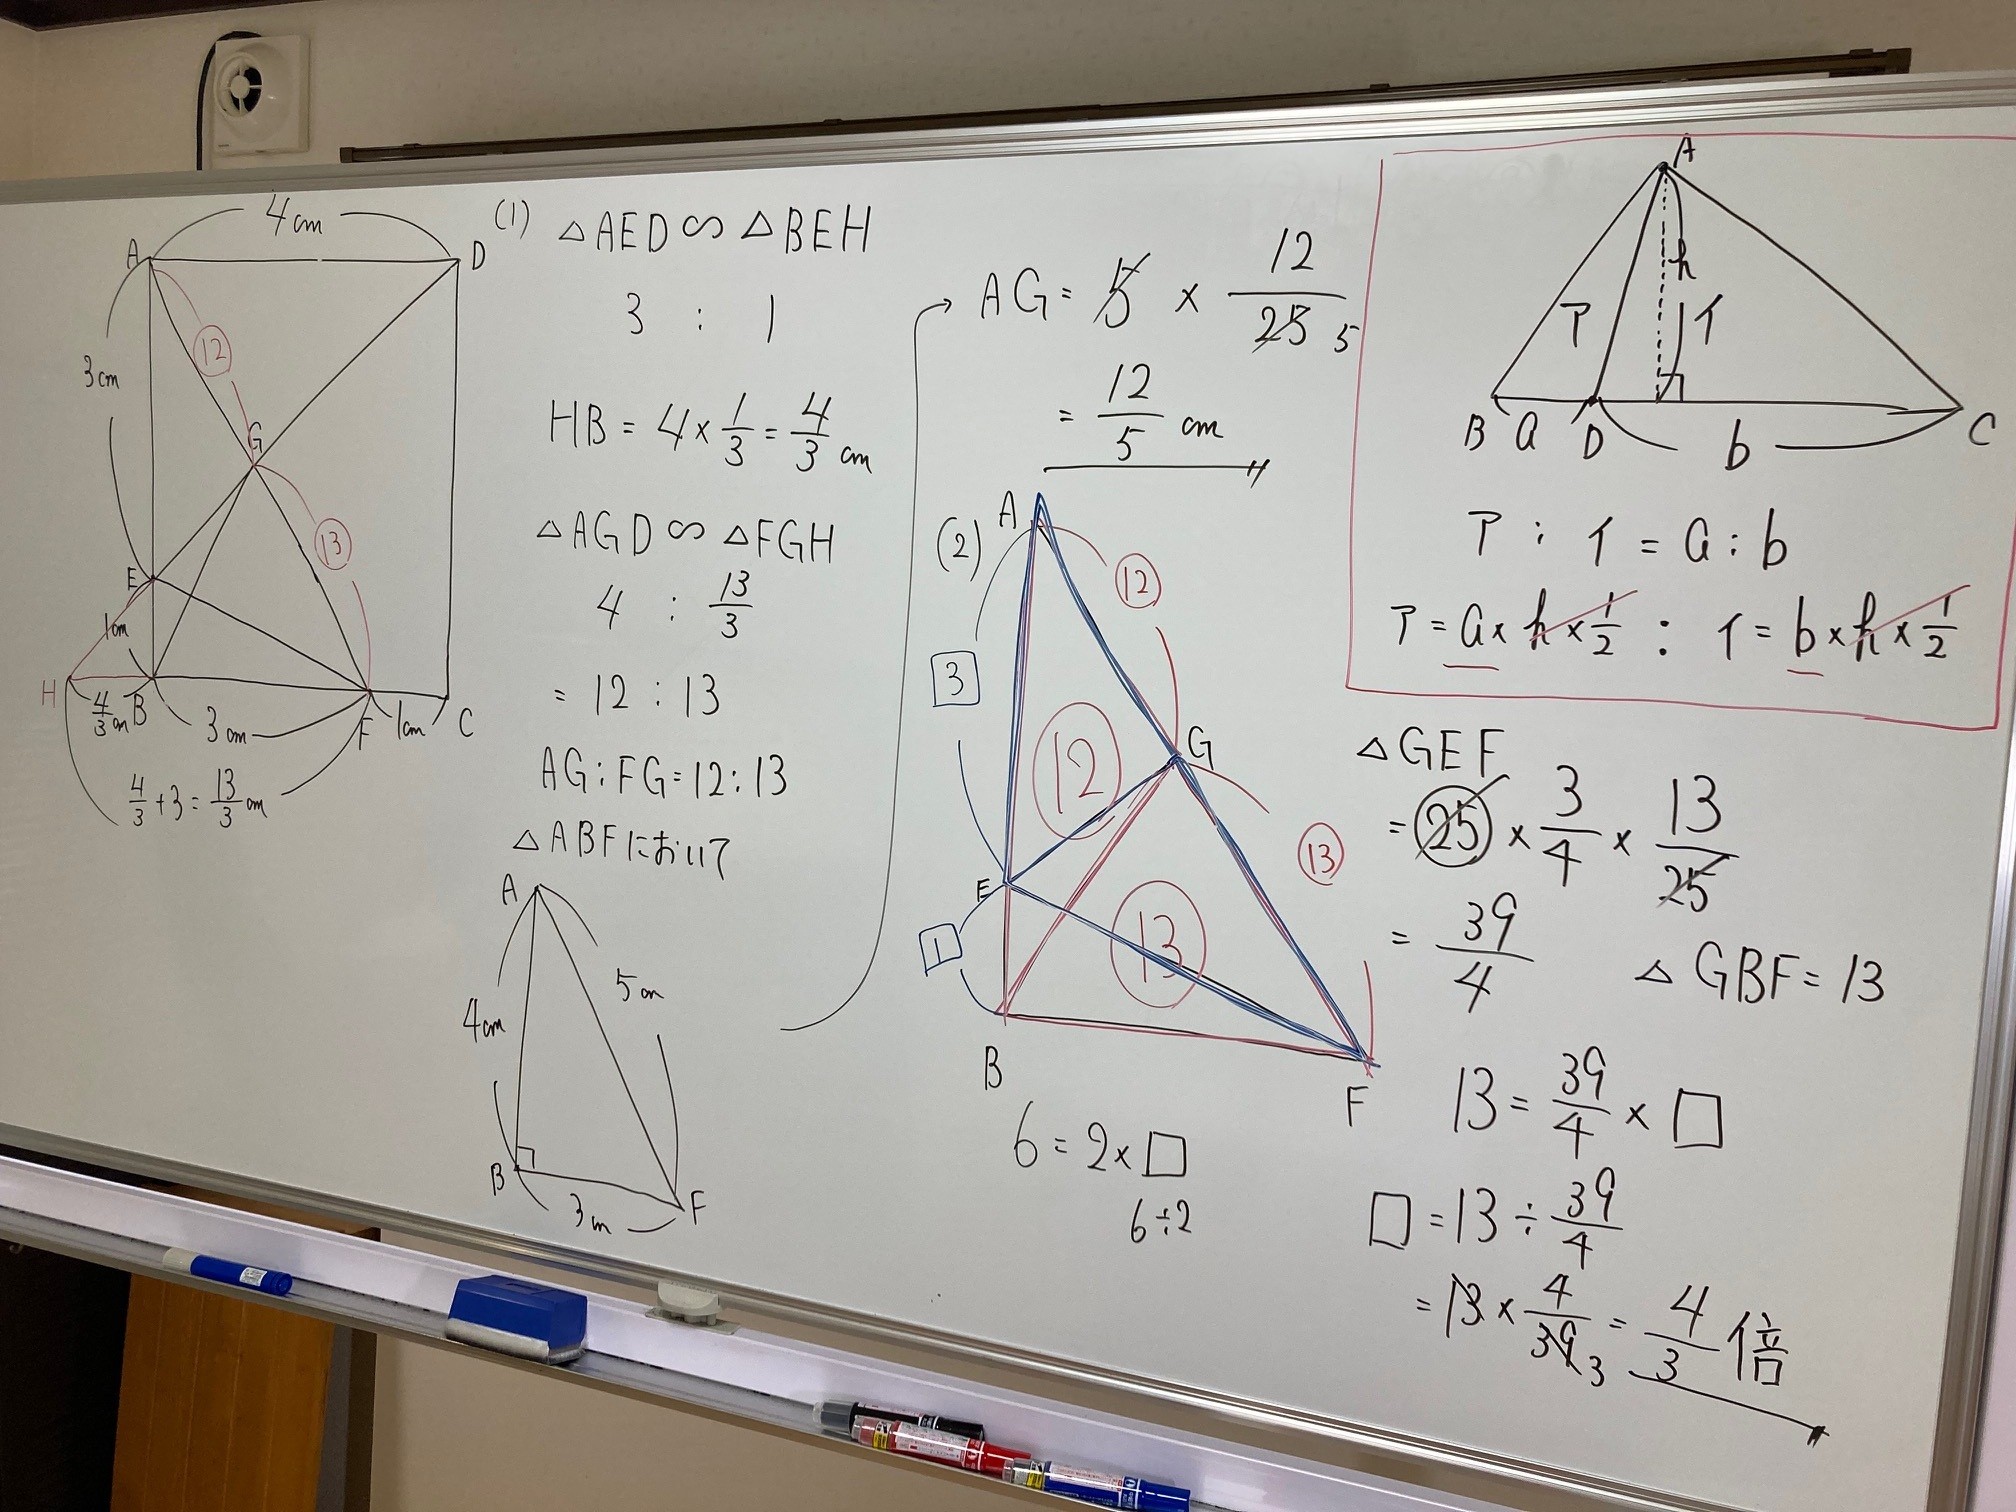 4cm
A
D
12
3cm
G
13
E
1cm
H
4/3 cm
B
3cm
F
1cm
C
4/3 + 3 = 13/3 cm
(1)
△AED∽△BEH
3 : 1
HB = 4 × 1/3 = 4/3 cm
△AGD∽△FGH
4 : 13/3
= 12 : 13
AG:FG=12:13
△ABFにおいて
A
5cm
4cm
B
3cm
F
AG = 5 × 12/25 5
= 12/5 cm
(2)
A
12
3
12
G
13
E
13
1
B
F
6 = 2 × □
6÷2
A
h
ア
イ
B
a
D
b
C
ア : イ = a : b
ア = a × h × 1/2 : イ = b × h × 1/2
△GEF
= 25 × 3/4 × 13/25
= 39/4
△GBF = 13
13 = 39/4 × □
□ = 13 ÷ 39/4
= 13 × 4/39 3 = 4/3 倍